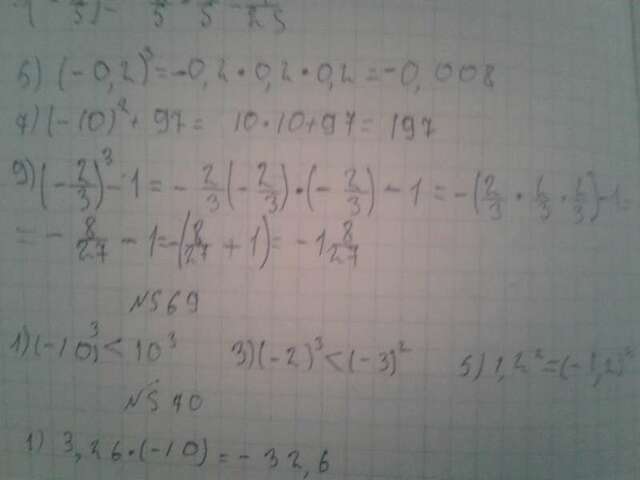 6) (-0,2)³ = -0,2·0,2·0,2 = -0,008
7) (-10)² + 97 = 10·10+97 = 197
9) (-2/3)³ - 1 = -2/3(-2/3)·(-2/3) - 1 = -(2/3·2/3·2/3)-1
= -8/27 - 1 = -(8/27 + 1) = -1 8/27
N569
1) (-10)³ < 10³ 3) (-2)³ < (-3)² 5) 1,2² = (-1,2)²
N570
1) 3,26·(-10) = -32,6